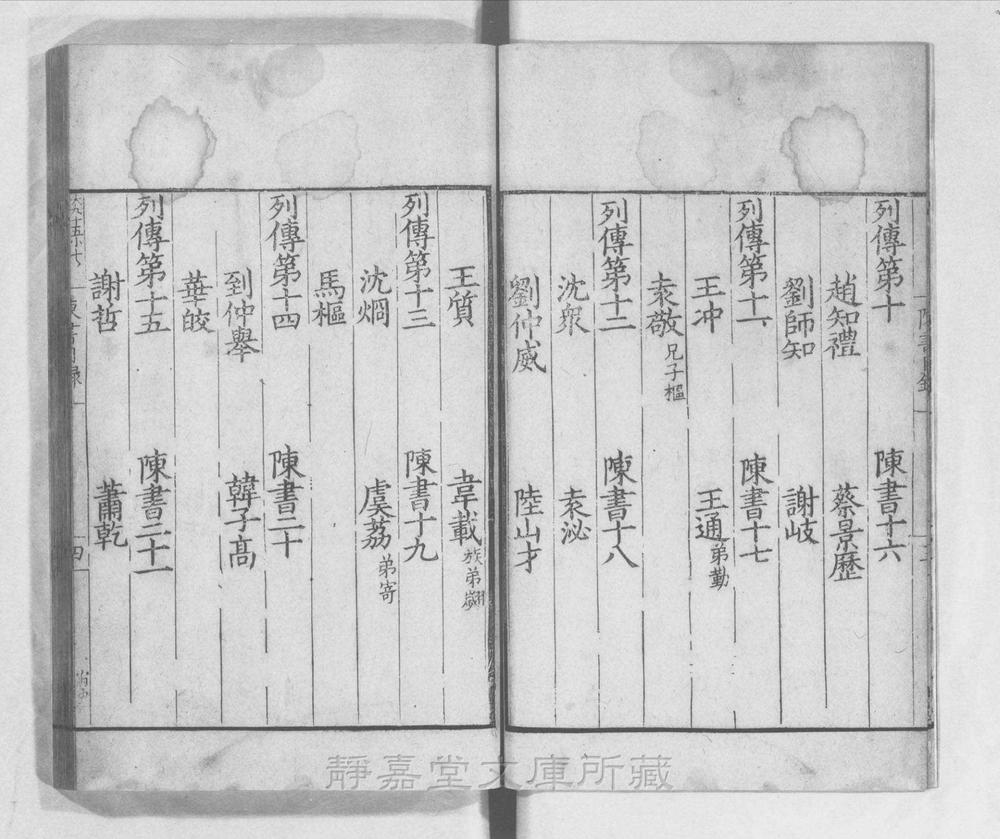 列傳第十　陳書十六
趙知禮　蔡景歷
劉師知　謝岐
列傳第十一　陳書十七
王冲　王通弟勱
袁敬兄子樞
列傳第十二　陳書十八
沈衆　袁泌
劉仲威　陸山才
王質　韋載族弟翽
列傳第十三　陳書十九
沈烱　虞荔弟寄
馬樞
列傳第十四　陳書二十
到仲舉　韓子髙
華皎
列傳第十五　陳書二十一
謝哲　蕭乾
四
靜嘉堂文庫所藏